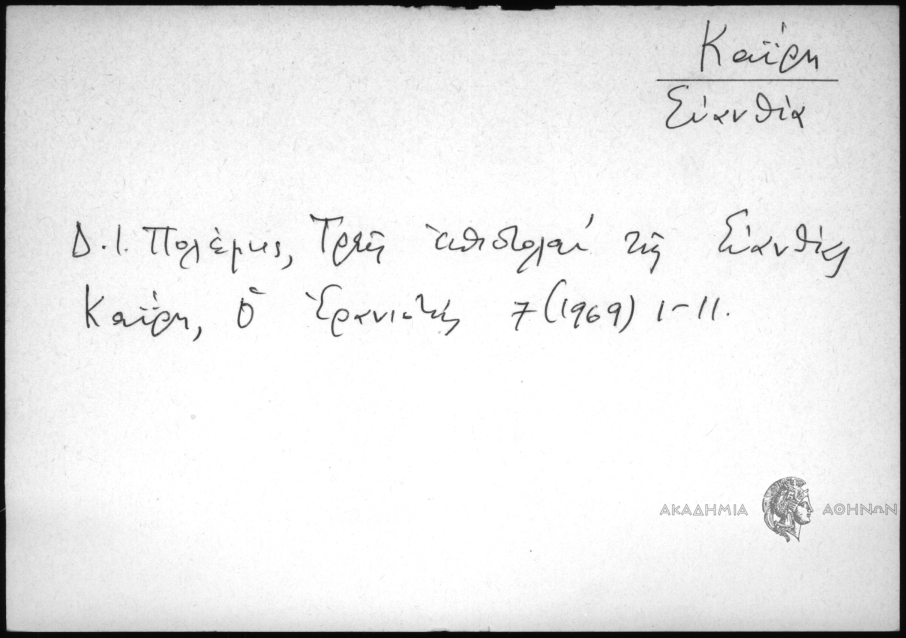 Καΐρη
Εὐανθία
Δ. Ι. Πολέμης, Τρεῖς ἐπιστολαὶ τῆς Εὐανθίας
Καΐρη, Ὁ Ἐρανιστής 7 (1969) 1-11.
ΑΚΑΔΗΜΙΑ ΑΘΗΝΩΝ